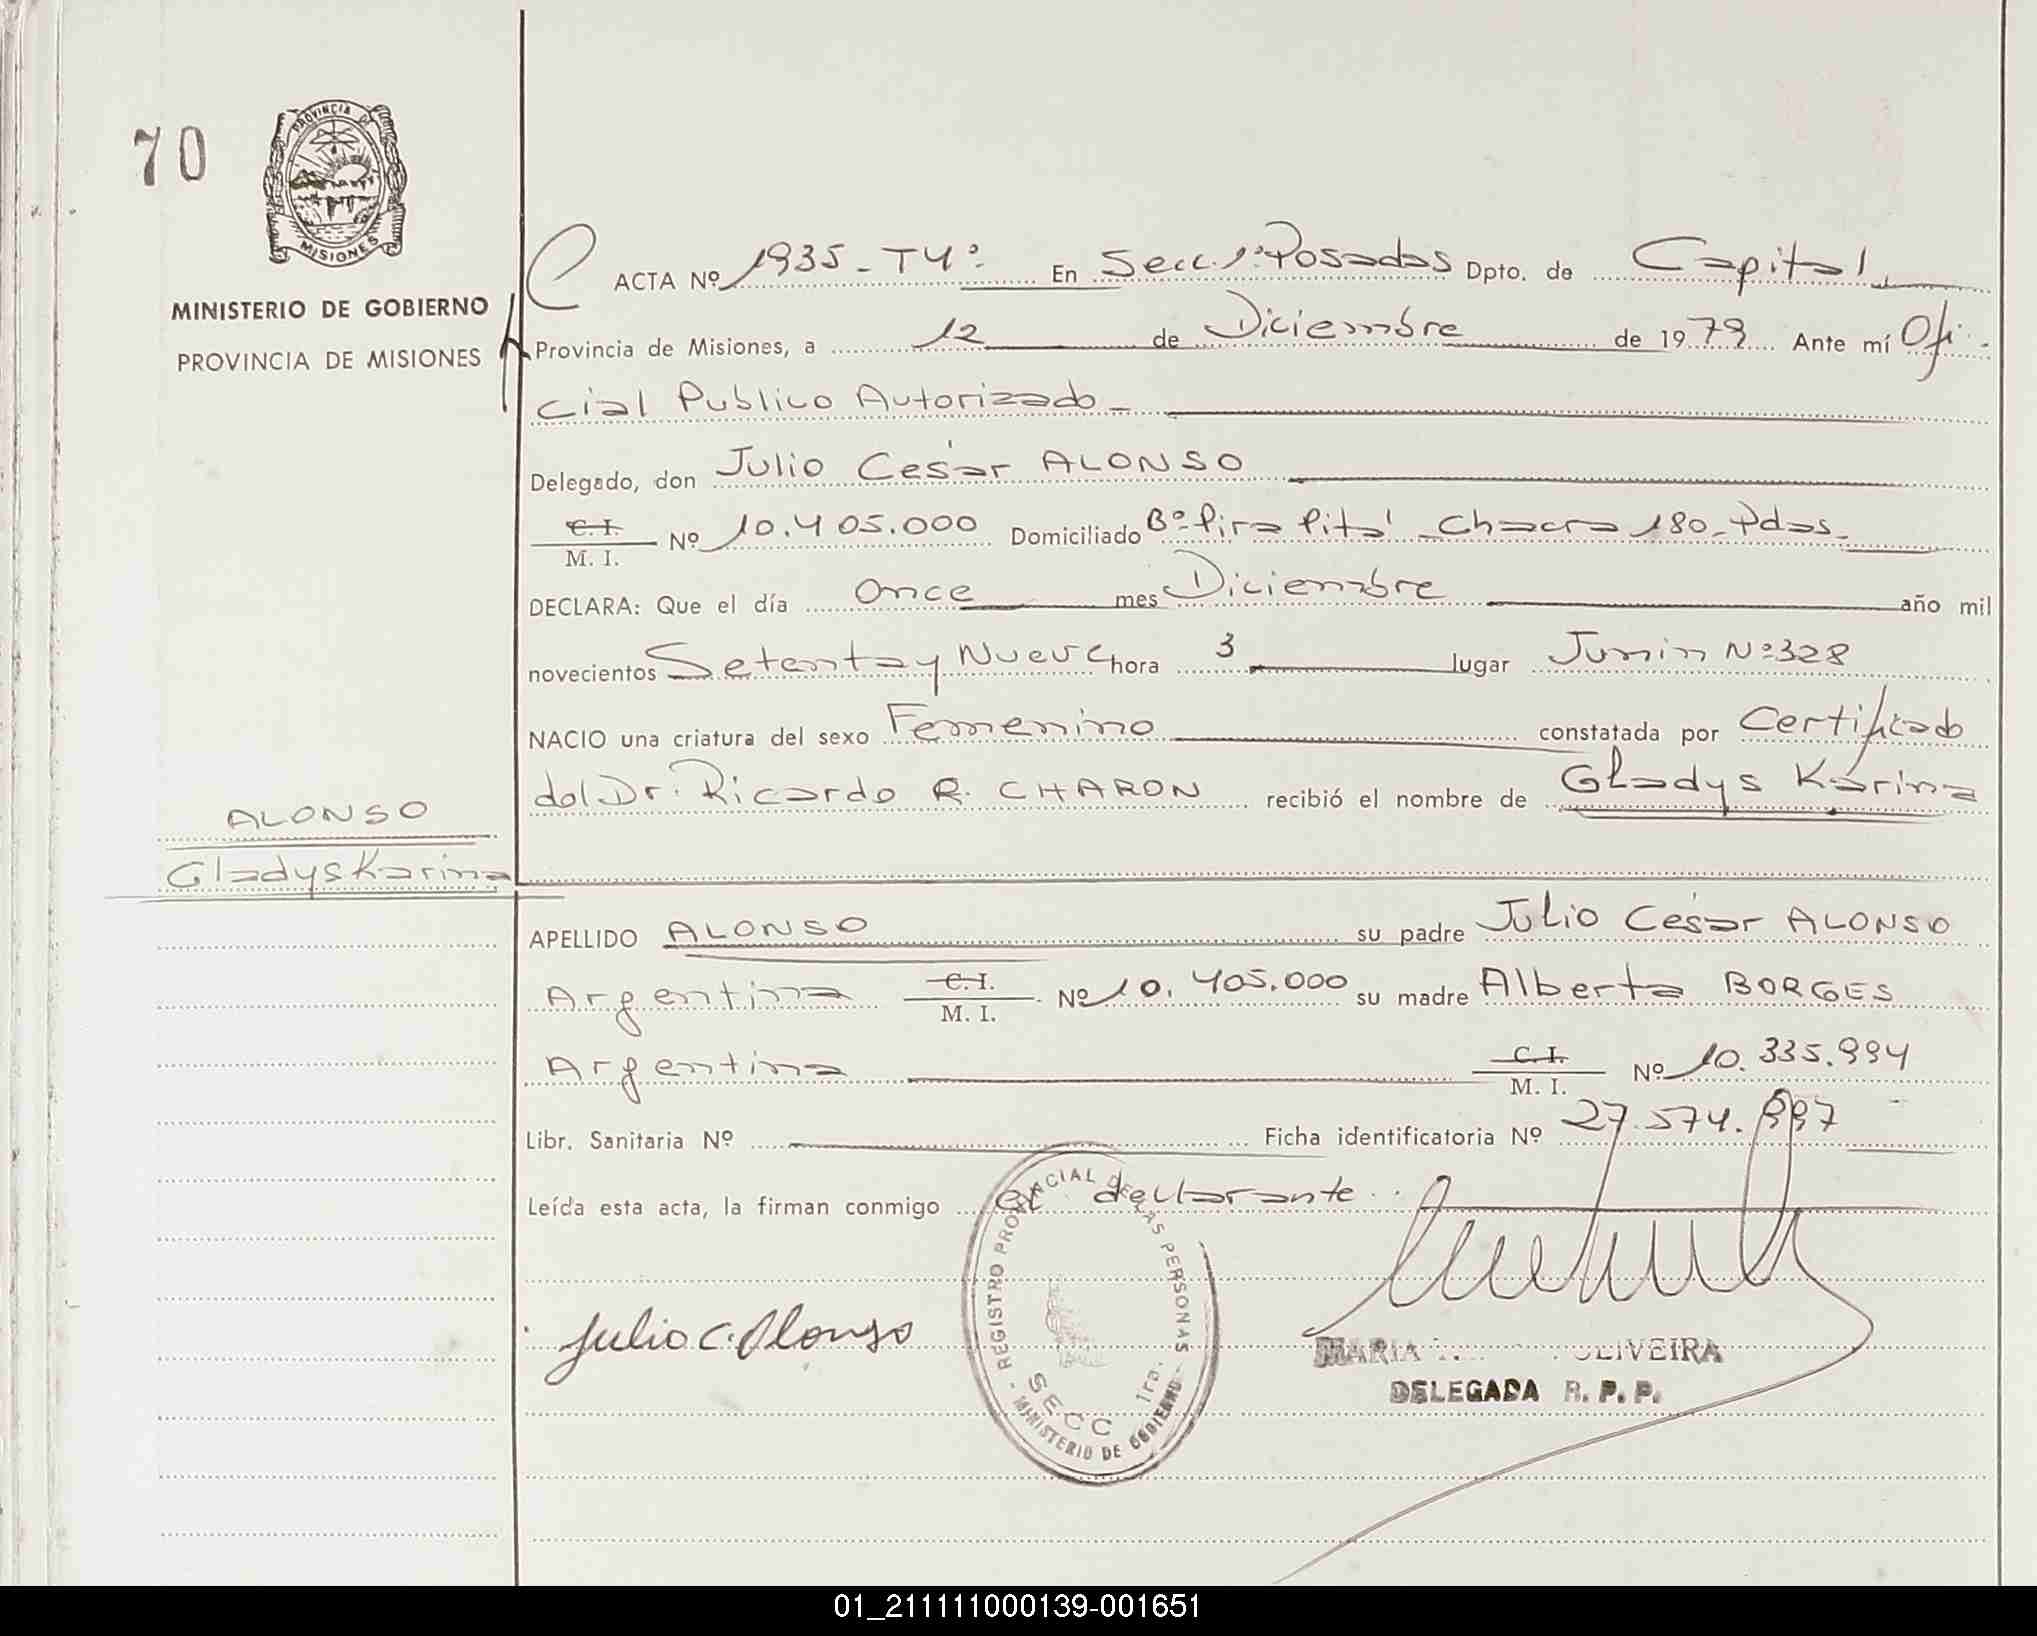 70
PROVINCIA DE
MISIONES
MINISTERIO DE GOBIERNO
PROVINCIA DE MISIONES
ACTA Nº 1935-T4º En Secc. 1ª Posadas Dpto. de Capital
Provincia de Misiones, a 12 de Diciembre de 1979 Ante mí Ofi
cial Publico Autorizado
Delegado, don Julio César ALONSO
C.I. M. I. Nº 10.405.000 Domiciliado Bº Pira Pitá - Chacra 180 - Pdas.
DECLARA: Que el día Once mes Diciembre año mil
novecientos Setenta y Nueve hora 3 lugar Junin Nº 328
NACIO una criatura del sexo Femenino constatada por Certificado
del Dr. Ricardo R. CHARON recibió el nombre de Gladys Karina
ALONSO
Gladys Karina
APELLIDO ALONSO su padre Julio César ALONSO
Argentina C.I. M. I. Nº 10.405.000 su madre Alberta BORGES
Argentina C.I. M. I. Nº 10.335.994
Libr. Sanitaria Nº Ficha identificatoria Nº 27.574.997
Leída esta acta, la firman conmigo el declarante.
Julio C. Alonso
REGISTRO PROVINCIAL DE LAS PERSONAS
SECC 1ra.
MINISTERIO DE GOBIERNO
MARIA OLIVEIRA
DELEGADA R. P. P.
01_211111000139-001651